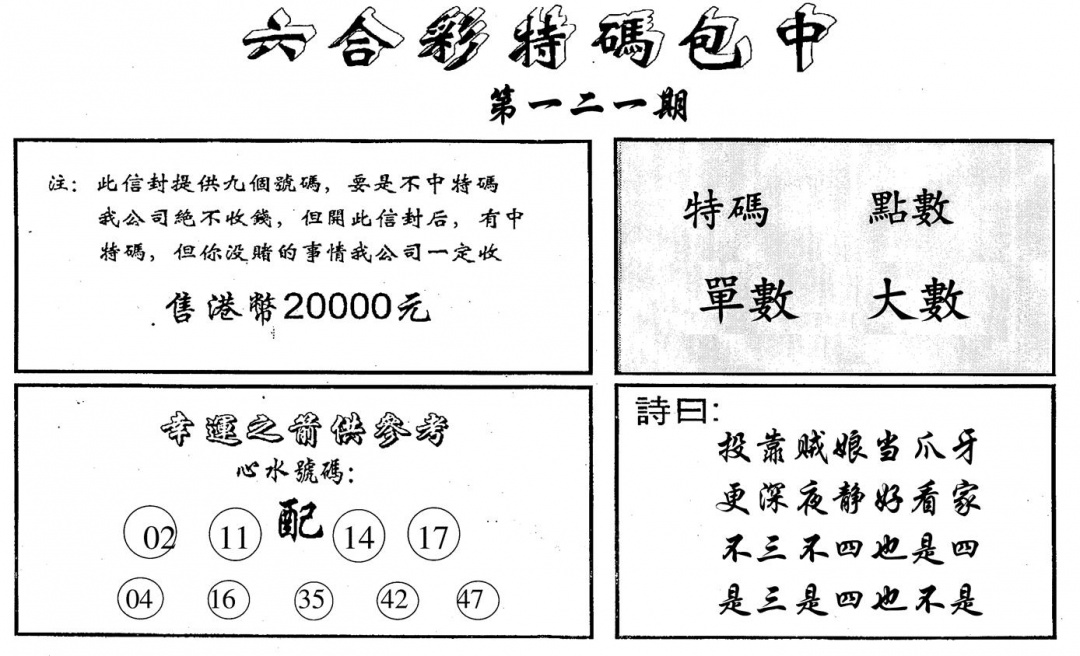 六合彩特碼包中
第一二一期
注：此信封提供九個號碼，要是不中特碼
我公司絕不收錢，但開此信封后，有中
特碼，但你没賭的事情我公司一定收
售港幣20000元
特碼 點數
單數 大數
幸運之箭供參考
心水號碼：
配
02 11 14 17
04 16 35 42 47
詩曰：
投靠贼娘当爪牙
更深夜静好看家
不三不四也是四
是三是四也不是